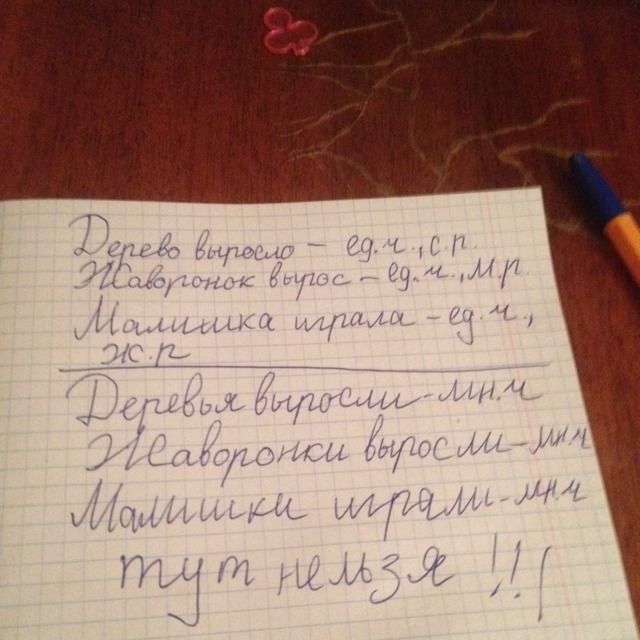 Дерево выросло – ед.ч., с.р.
Жаворонок вырос – ед.ч., м.р.
Малишка играла – ед.ч.,
ж.р
Деревья выросли – мн.ч
Жаворонки выросли – мн.ч
Малишки играли – мн.ч
тут нельзя !!!